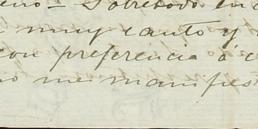 eno - Sobretodo en
muy cauto y
con preferencia a
no me manifes